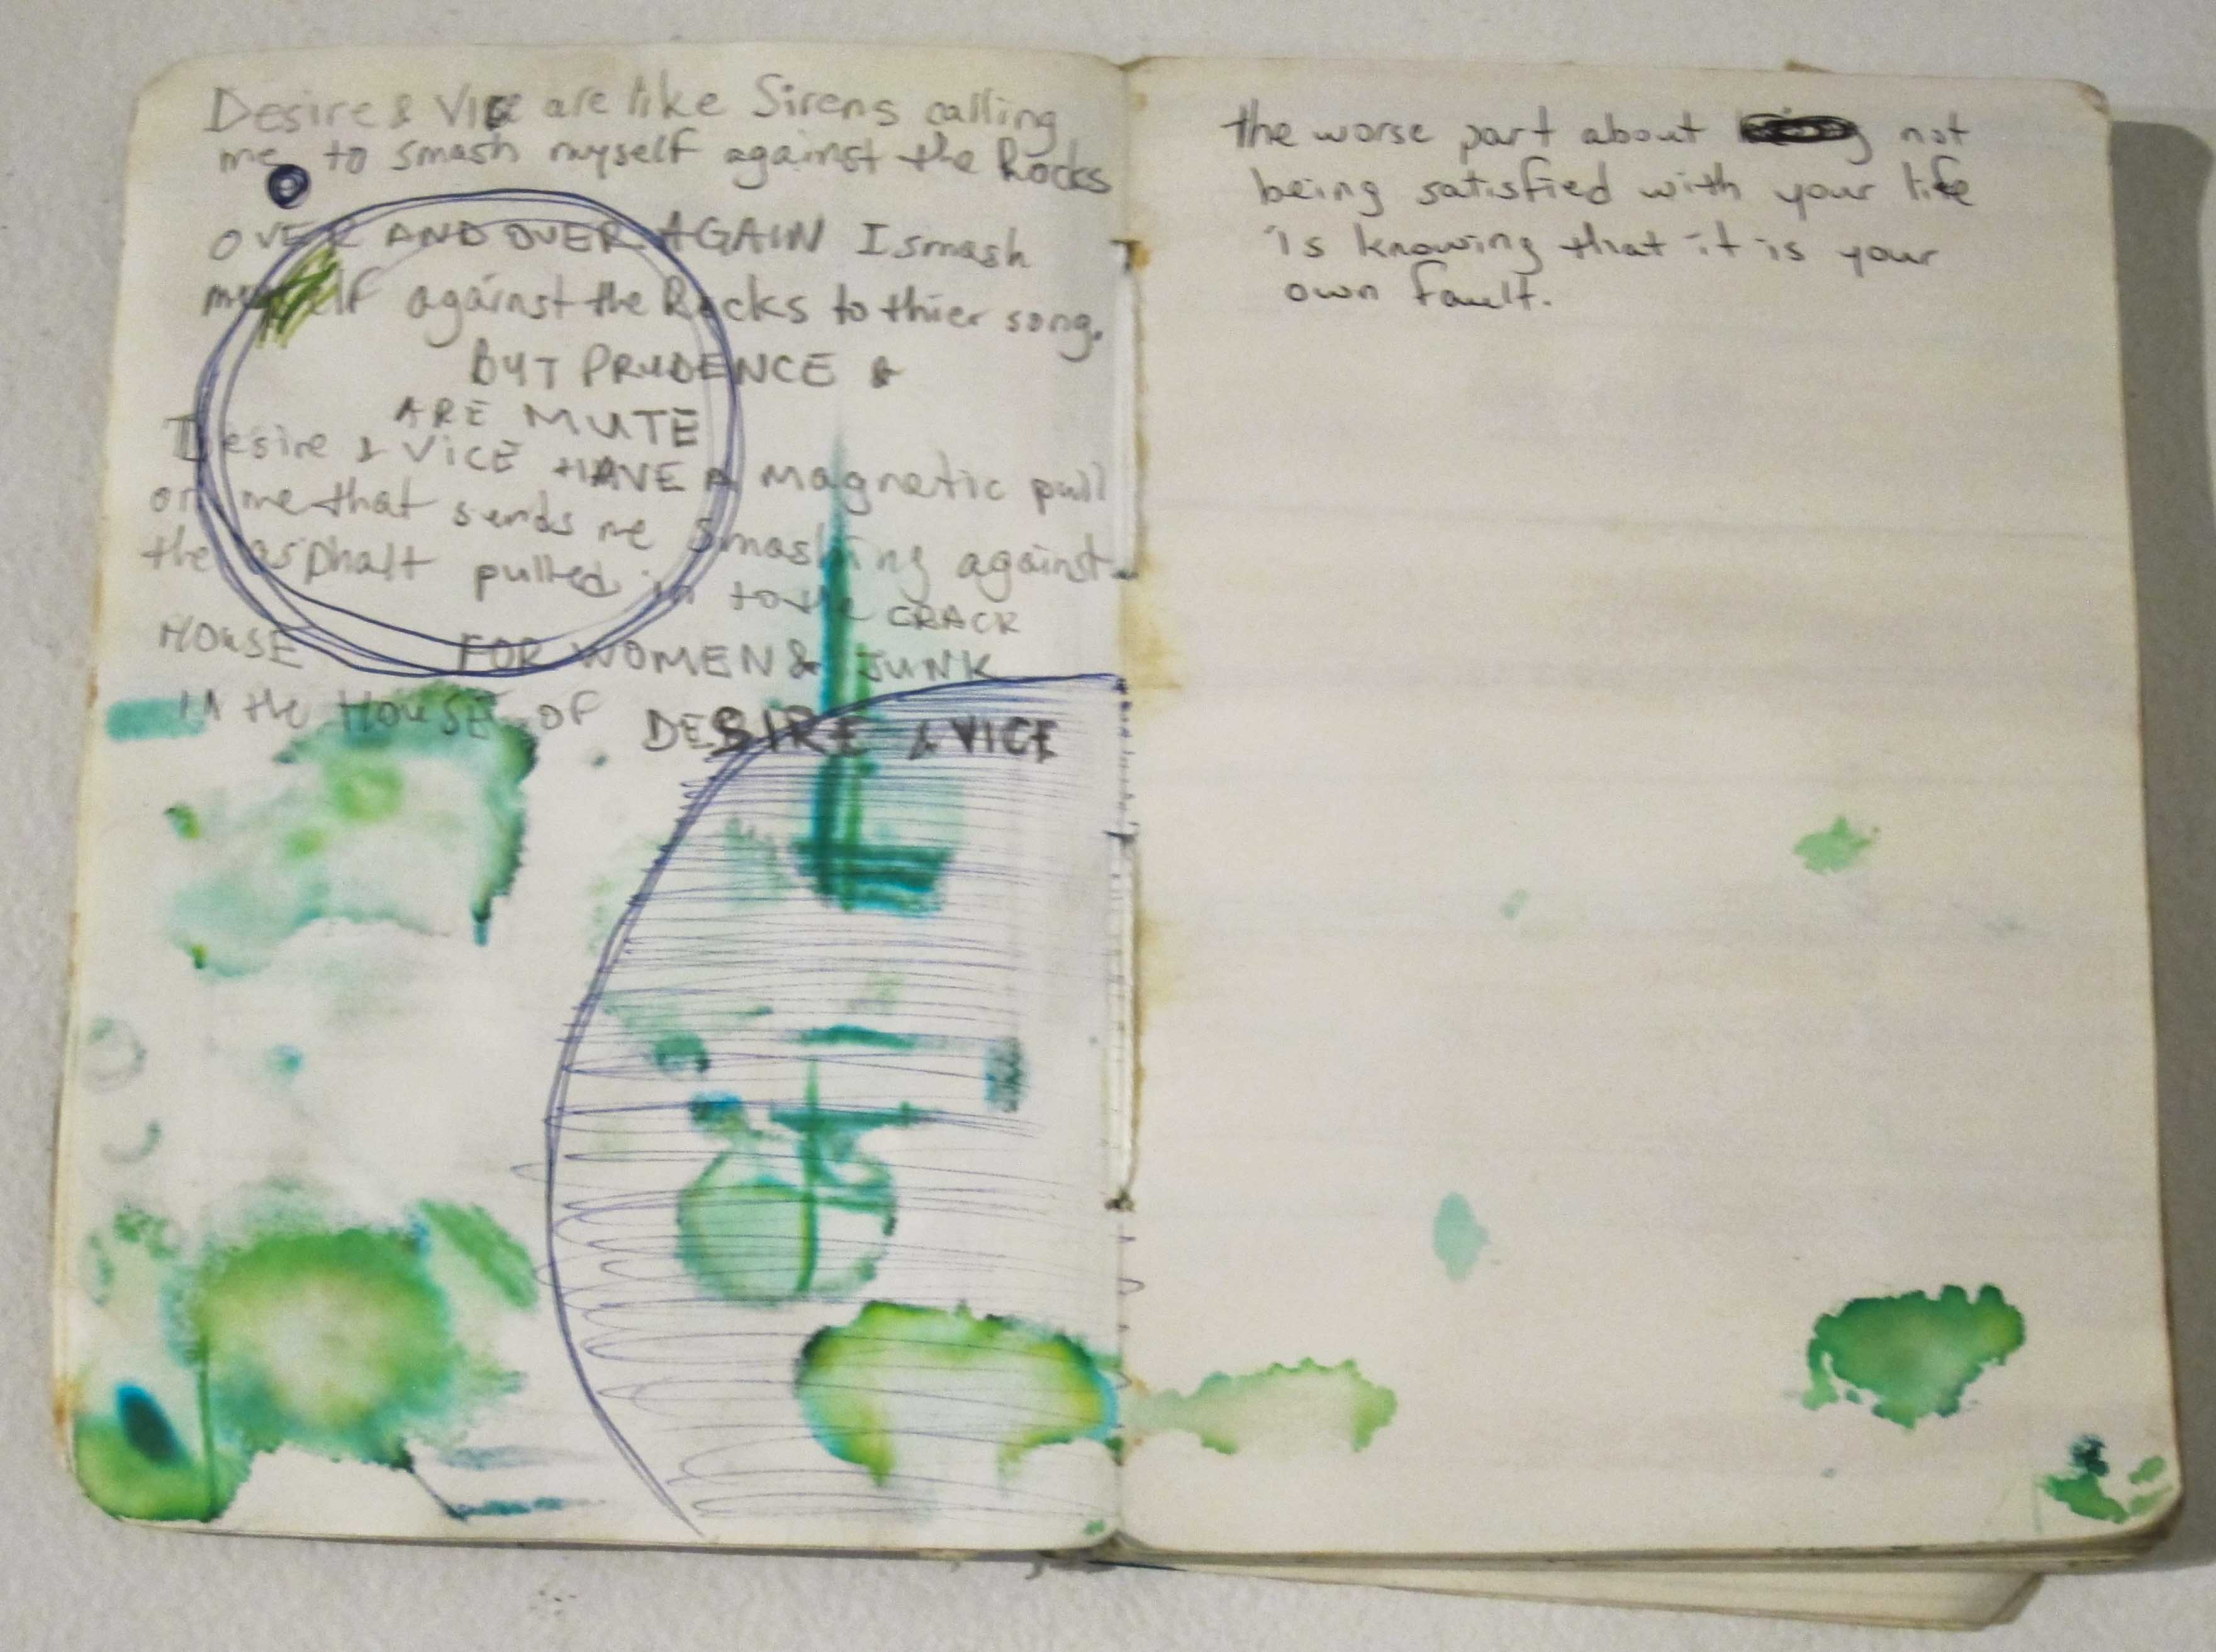 Desire & Vice are like Sirens calling
me to smash myself against the Rocks
OVER AND OVER AGAIN I smash
myself against the Rocks to thier song.
BUT PRUDENCE &
ARE MUTE
Desire & VICE HAVE A magnetic pull
on me that sends me smashing against
the asphalt pulled in to the CRACK
HOUSE FOR WOMEN & JUNK
IN the HOUSE OF DESIRE & VICE
the worse part about not
being satisfied with your life
is knowing that it is your
own fault.